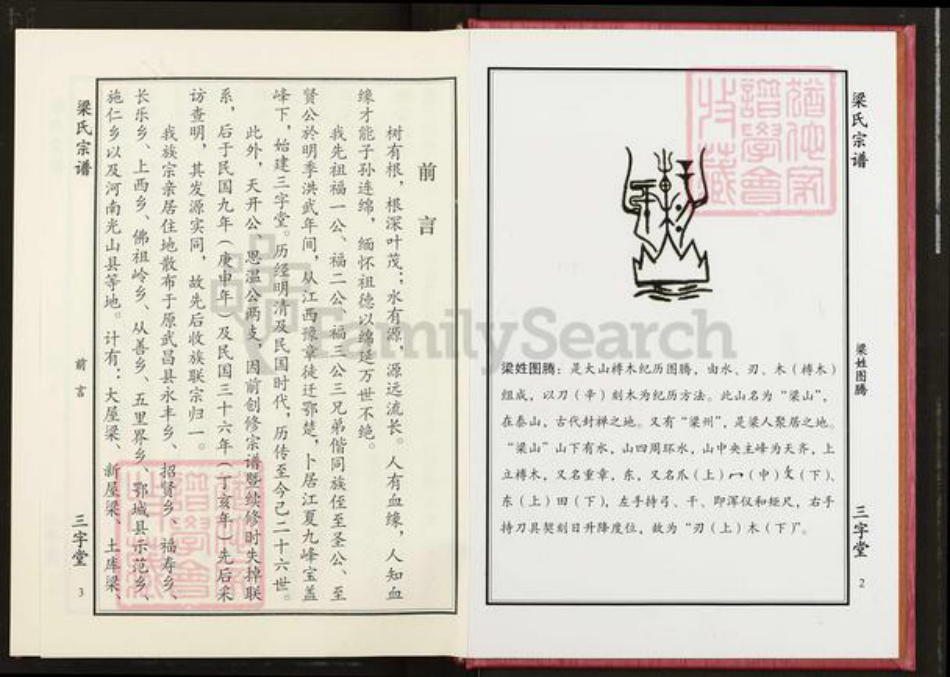 梁氏宗谱
梁姓图腾
三字堂
2
梁姓图腾：是大山榑木纪历图腾，由水、刃、木（榑木）
组成，以刀（辛）刻木为纪历方法。此山名为“梁山”，
在泰山，古代封禅之地。又有“梁州”，是梁人聚居之地。
“梁山”山下有水，山四周环水，山中央主峰为天齐，上
立榑木，又名重章，东，又名爪（上）（中）（下）、
东（上）田（下），左手持弓、干、即浑仪和矩尺，右手
持刀具契刻日升降度位，故为“刃（上）木（下）”。
前言
树有根，根深叶茂；水有源，源远流长。人有血缘，人知血
缘才能子孙连绵，缅怀祖德以绵延万世不绝。
我先祖福一公、福二公、福三公三兄弟偕同族侄至圣公、至
贤公於明季洪武年间，从江西豫章徒迁鄂楚，卜居江夏九峰宝盖
峰下，始建三字堂。历经明清及民国时代，历传至今己二十六世。
此外，天开公、思温公两支，因前创修宗谱暨续修时失掉联
系，后于民国九年（庚申年）及民国三十六年（丁亥年）先后采
访查明，其发源实同，故先后收族联宗归一。
我族宗亲居住地散布于原武昌县永丰乡、招贤乡、福寿乡、
长乐乡、上西乡、佛祖岭乡、从善乡、五里界乡、鄂城县示范乡、
施仁乡以及河南光山县等地。计有：大屋梁、新屋梁、土库梁、
梁氏宗谱
前言
三字堂
3
FamilySearch